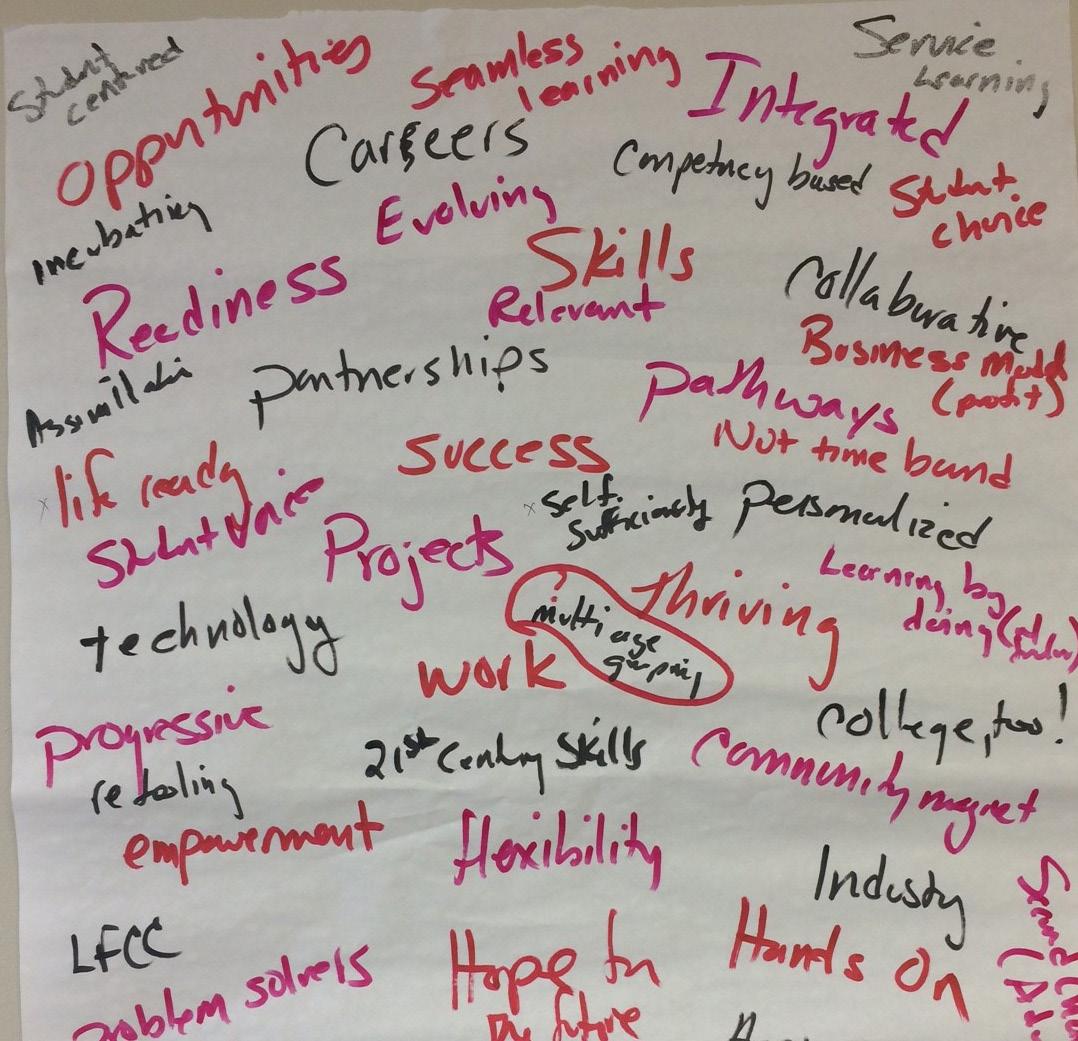 Student
centered
Opportunities
Seamless
learning
Service
Learning
Integrated
Careers
Competency based
Student
choice
Incubating
Evolving
Skills
Relevant
Collaborative
Readiness
Business Model
(profit)
Assimilation
partnerships
pathways
Not time bound
Success
life ready
Student Voice
Self
Sufficiency
personalized
Projects
Learning by
doing
Thriving
multi age
grouping
technology
work
college, too!
progressive
21st Century Skills
Community magnet
retooling
empowerment
flexibility
Industry
LFCC
Hands On
Hope for
the future
problem solvers